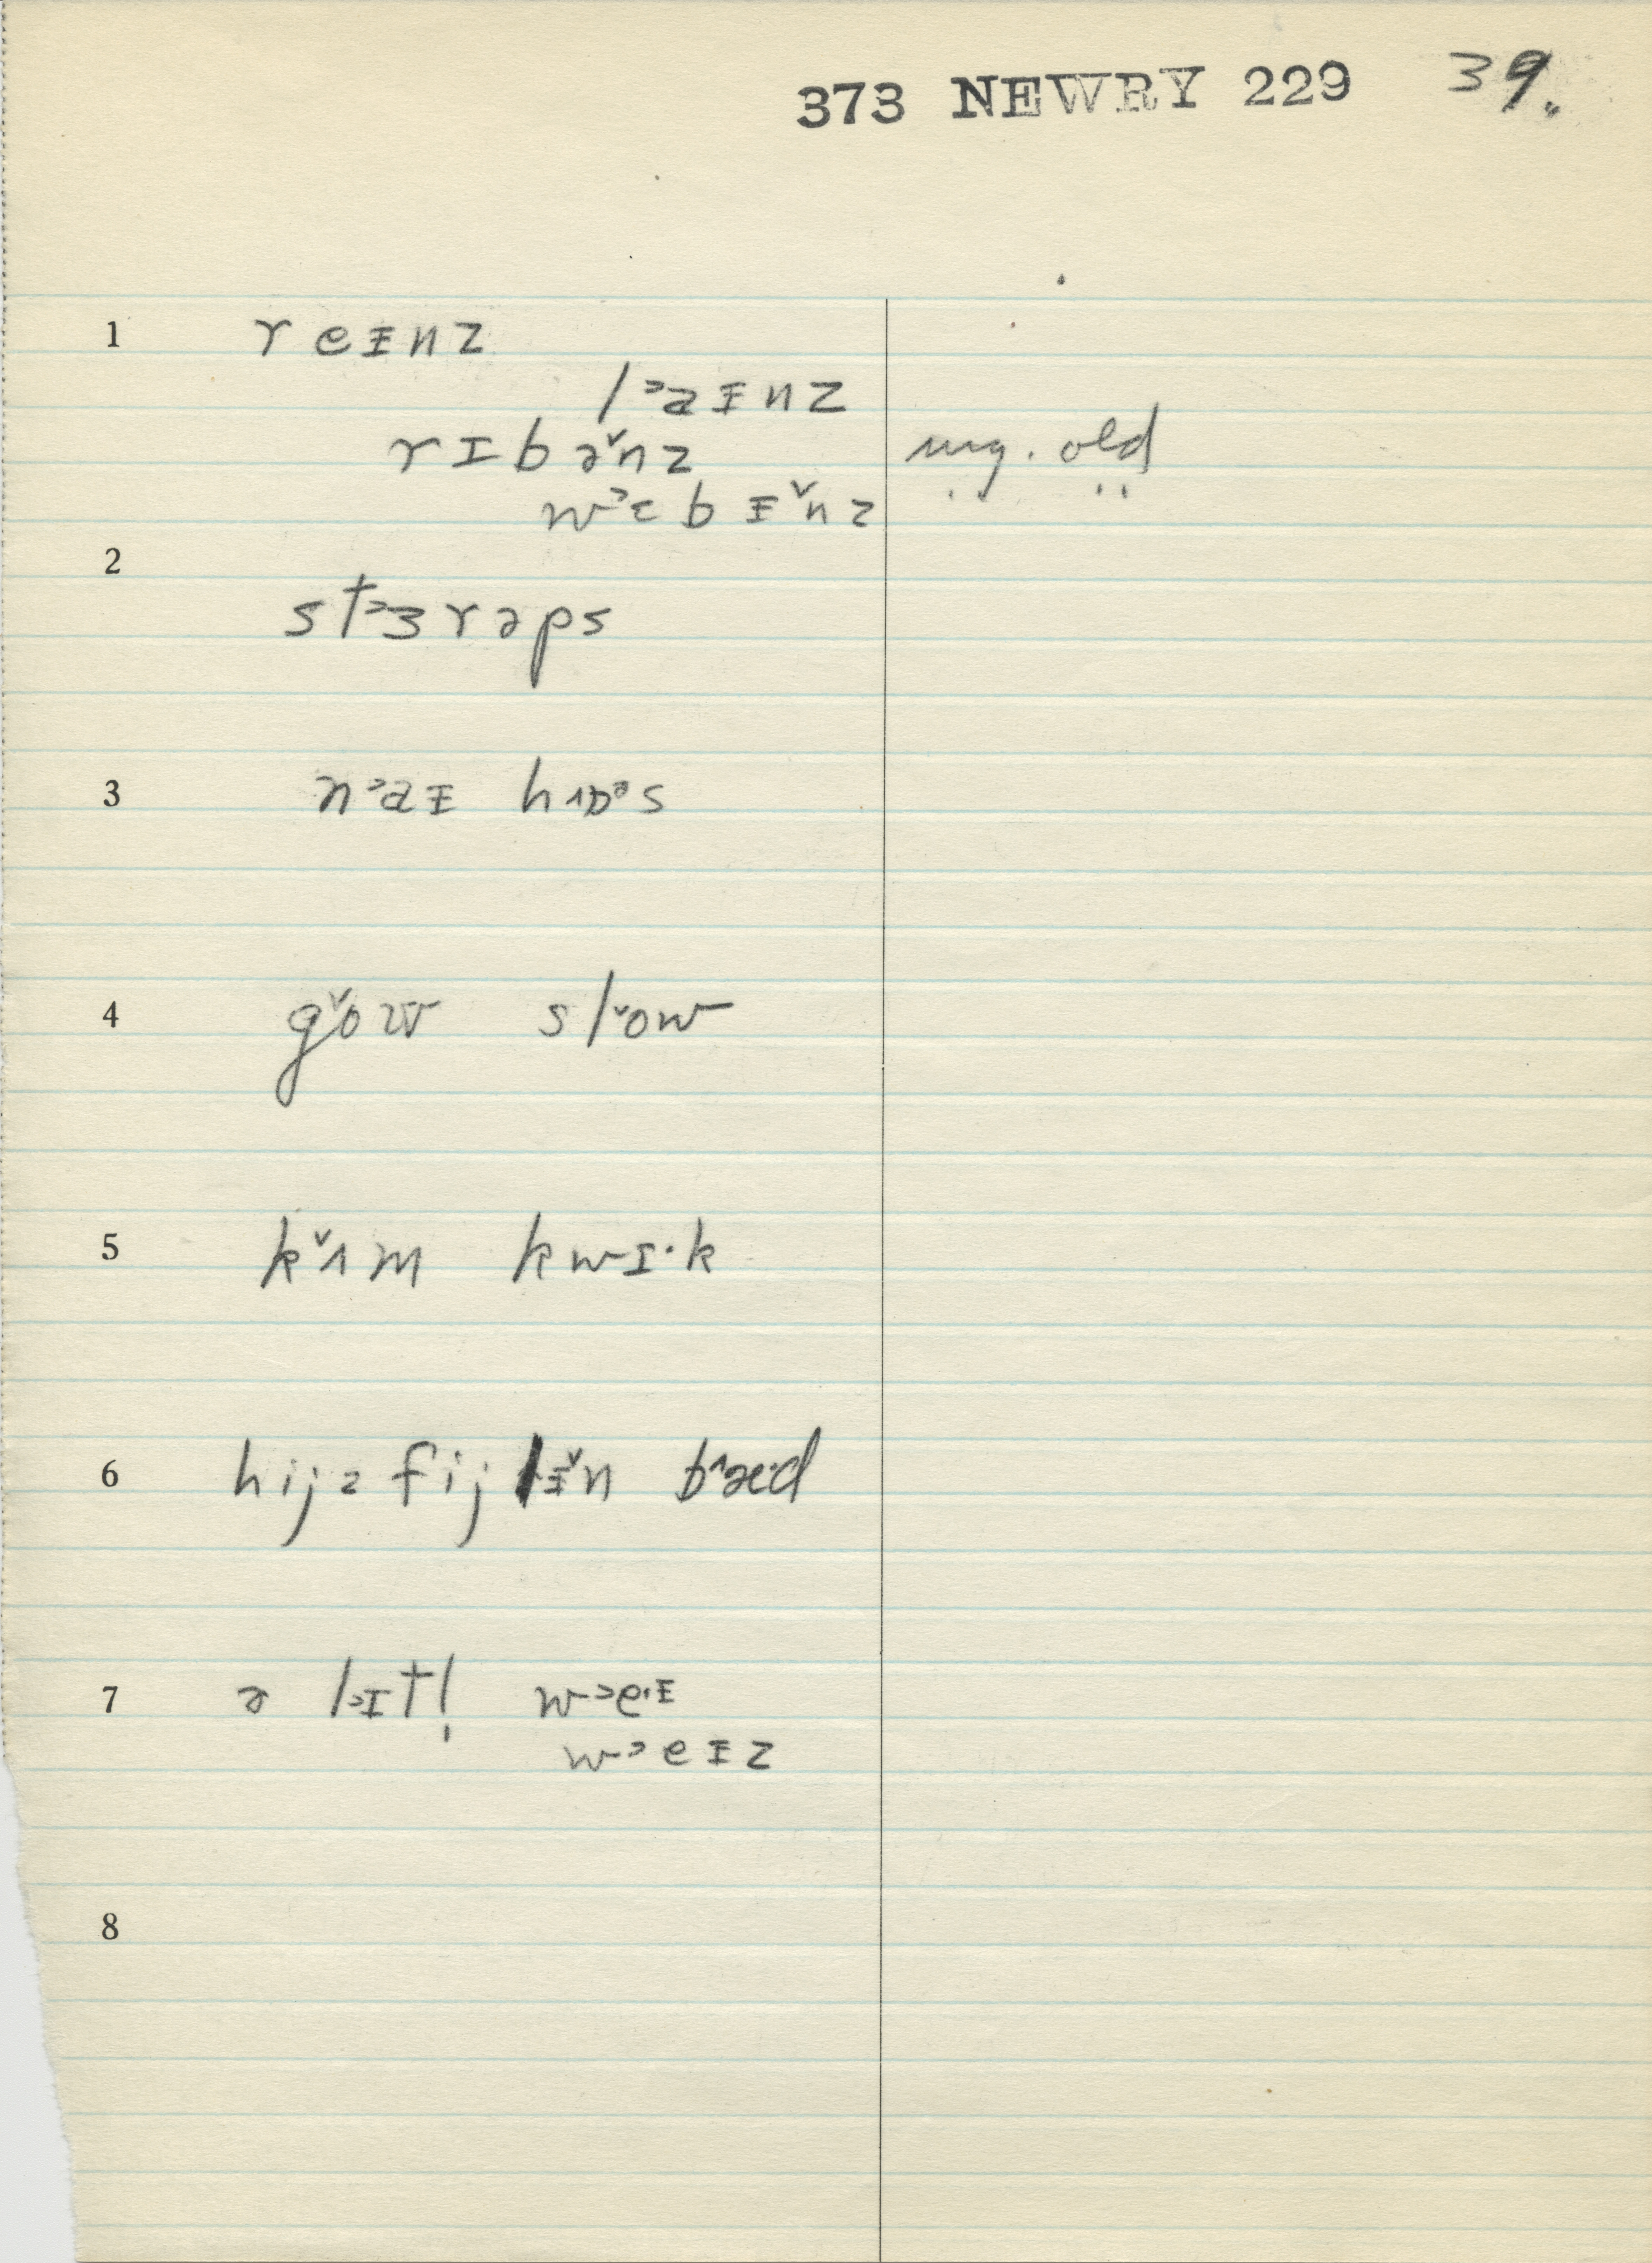 373 NEWRY 229 39.
1 r e ᵻ n z
l ˃a ᵻ n z
r ɪ b ə˅n z ug. old
w˃ɛ b ᵻ˅n z " "
2
s t˃ɜ r ə p s
3 n˃a ᵻ h ɒ˃s
4 g˅o w s l˅o w
5 k˅ʌ m k w ɪ· k
6 h i j z f i j l ᵻ˅n b˄æ·d
7 ə l˃ɪ t l̩ w˃e· ᵻ
w˃e ᵻ z
8